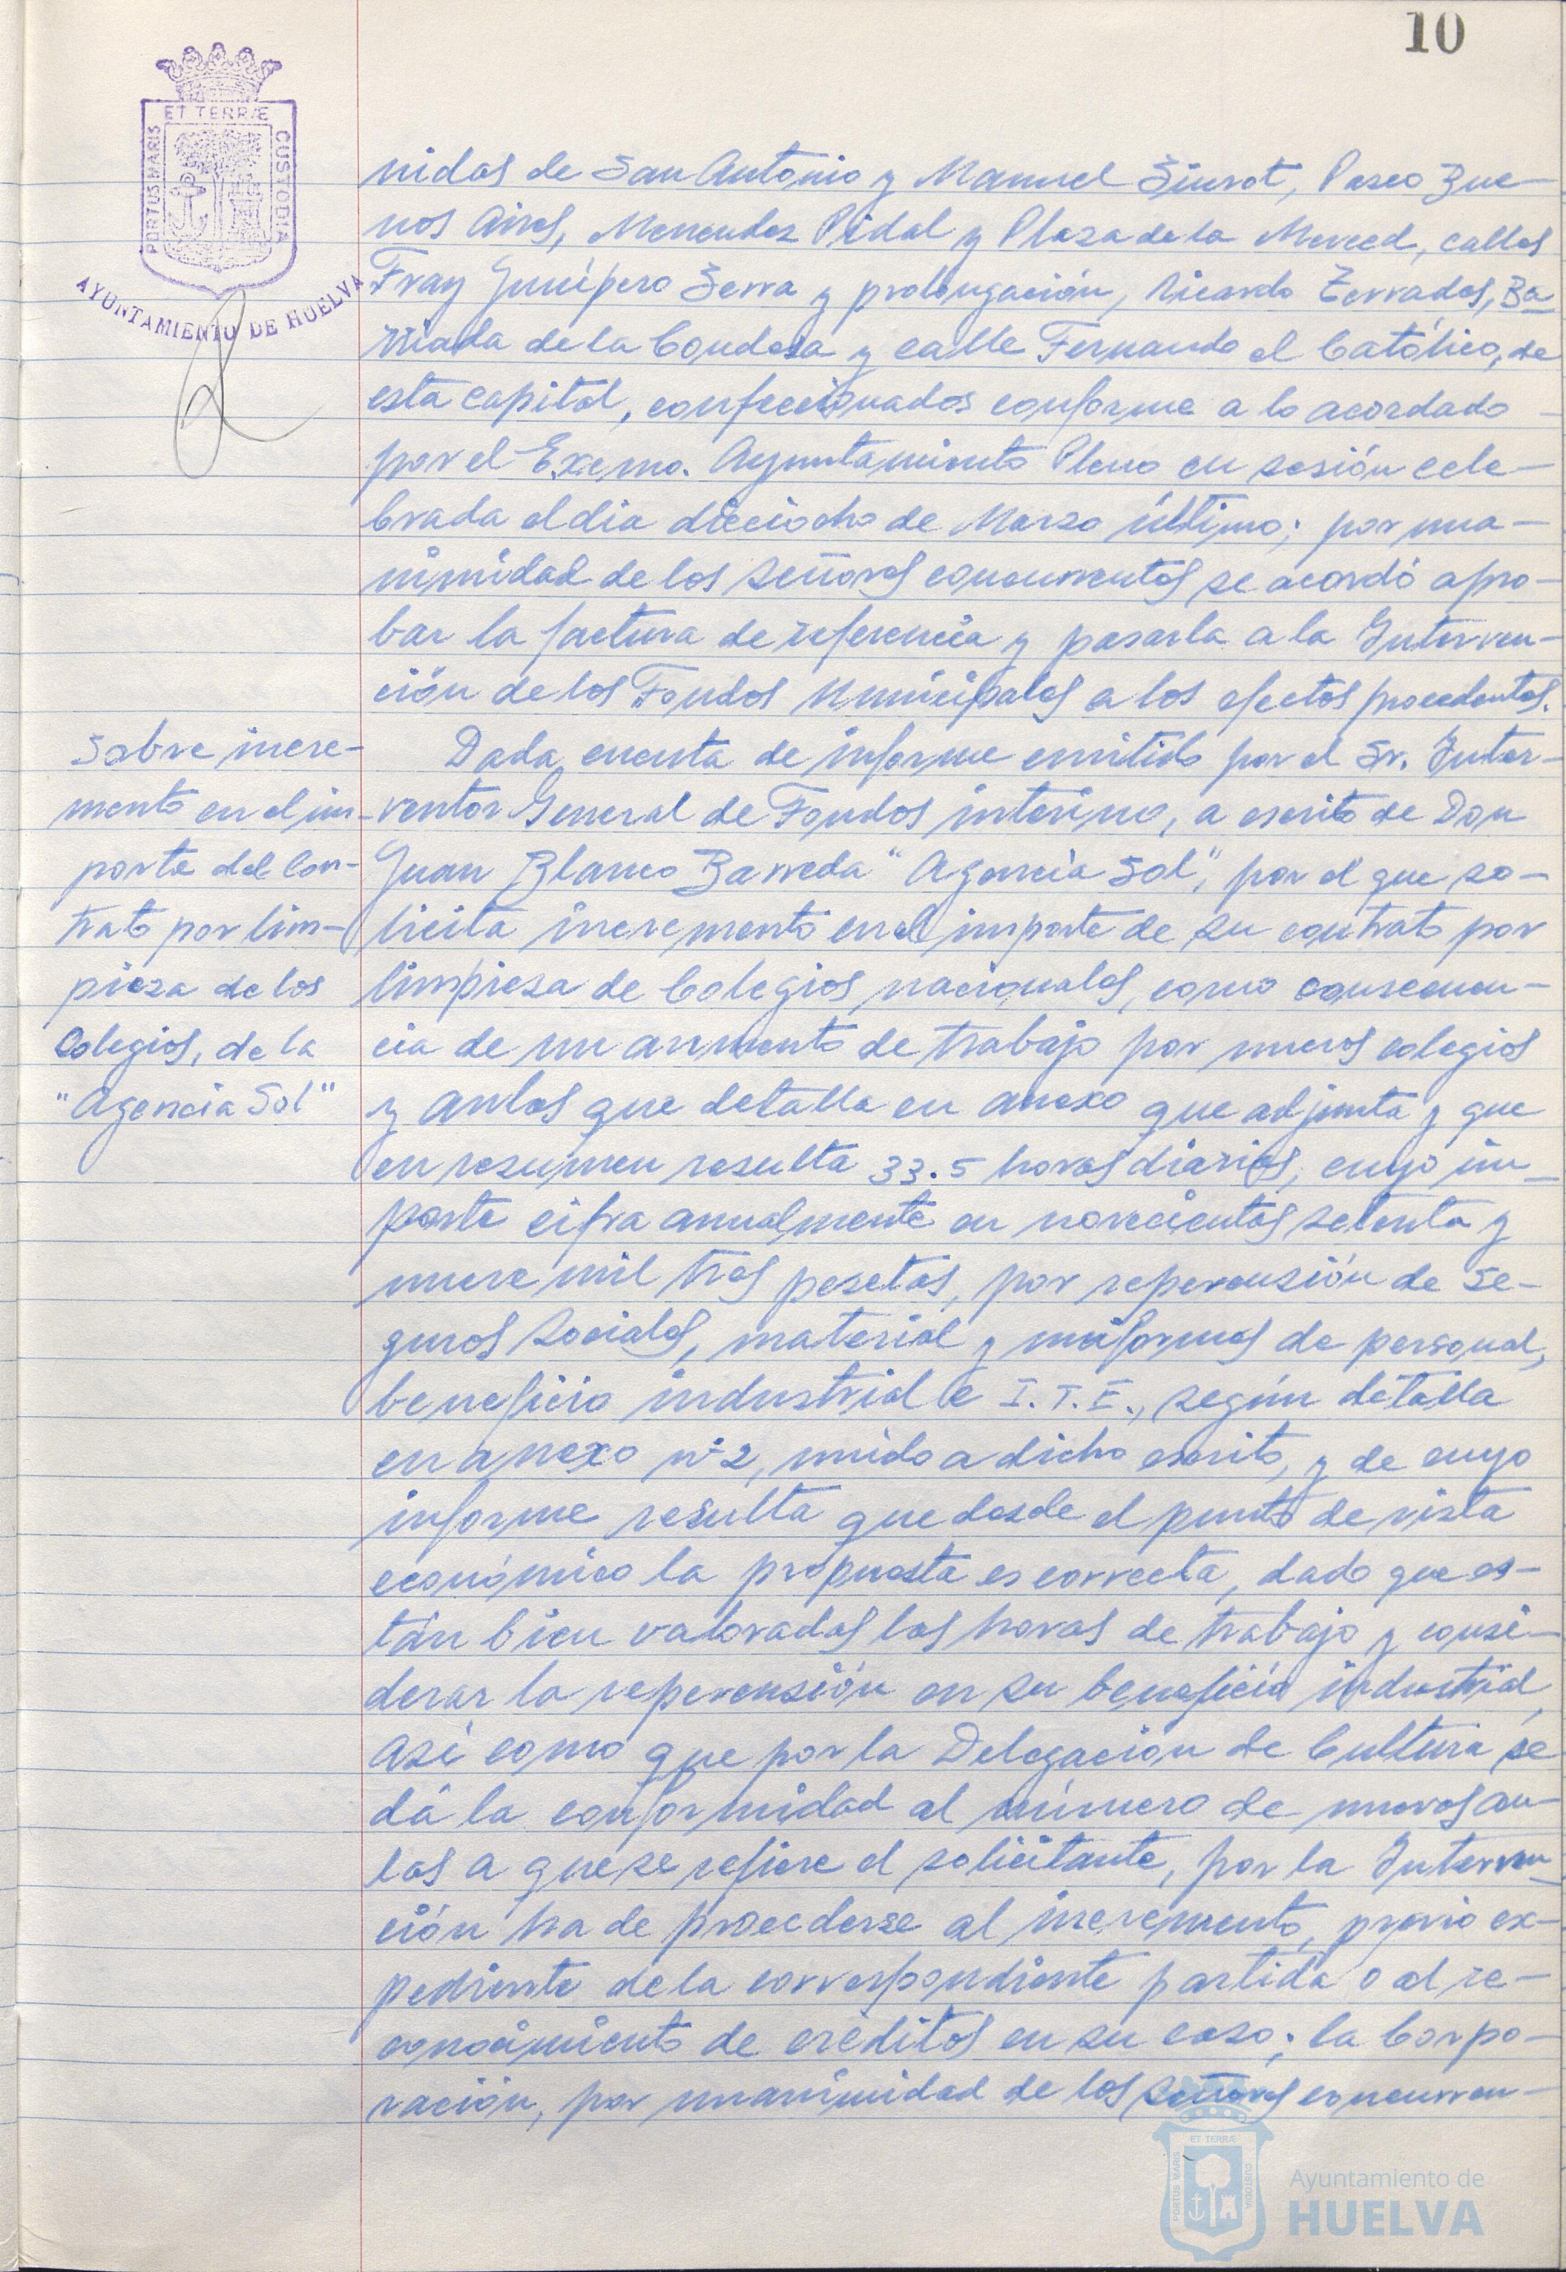 10
ET TERRÆ
PORTUS MARIS
CUSTODIA
AYUNTAMIENTO DE HUELVA
nidas de San Antonio y Manuel Siurot, Paseo Bue-
nos Aires, Menendez Pidal y Plaza de la Merced, calles
Fray Junípero Serra y prolongación, Ricardo Terrades, Ba-
rriada de la Condesa y calle Fernando el Católico, de
esta capital, confeccionados conforme a lo acordado
por el Excmo. Ayuntamiento Pleno en sesión cele-
brada el dia dieciocho de Marzo último; por una-
nimidad de los señores concurrentes se acordó apro-
bar la factura de referencia y pasarla a la Interven-
ción de los Fondos Municipales a los efectos procedentes.
Sobre incre-
mento en el im-
porte del con-
trato por lim-
pieza de los
Colegios, de la
"Agencia Sol"
Dada cuenta de informe emitido por el Sr. Inter-
ventor General de Fondos interino, a escrito de Don
Juan Blanco Barreda "Agencia Sol", por el que so-
licita incremento en el importe de su contrato por
limpieza de Colegios nacionales, como consecuen-
cia de un aumento de trabajo por nuevos colegios
y aulas que detalla en anexo que adjunta y que
en resumen resulta 33.5 horas diarias, cuyo im-
porte cifra anualmente en novecientas setenta y
nueve mil tres pesetas, por repercusión de Se-
guros Sociales, material y uniformes de personal,
beneficio industrial e I.T.E., según detalla
en anexo nº 2, unido a dicho escrito, y de cuyo
informe resulta que desde el punto de vista
económico la propuesta es correcta, dado que es-
tán bien valoradas las horas de trabajo y consi-
derar la repercusión en su beneficio industrial,
así como que por la Delegación de Cultura se
dá la conformidad al número de nuevas au-
las a que se refiere el solicitante, por la Interven-
ción ha de procederse al incremento, previo ex-
pediente de la correspondiente partida o al re-
conocimiento de créditos en su caso; la Corpo-
ración, por unanimidad de los señores concurren-
ET TERRÆ
PORTUS MARIS
CUSTODIA
Ayuntamiento de
HUELVA